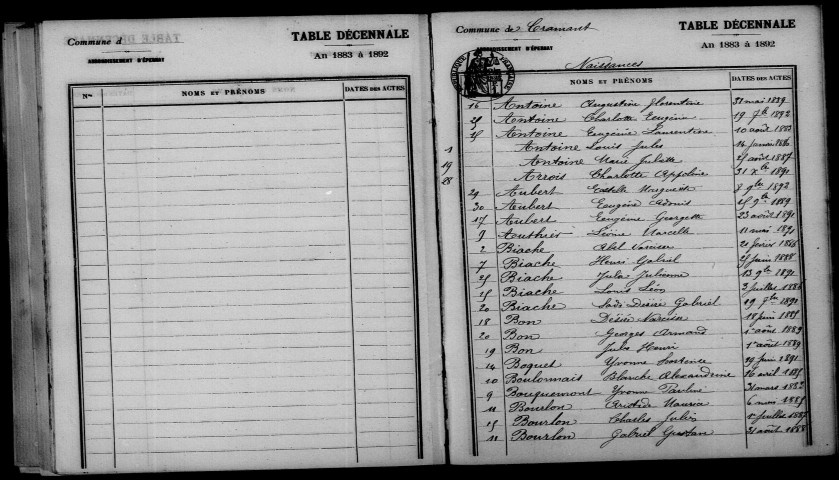 Commune d
TABLE DÉCENNALE
ARRONDISSEMENT D'ÉPERNAY
An 1883 à 1892
Nos
NOMS ET PRÉNOMS
DATES DES ACTES
Commune de Cramant
TABLE DÉCENNALE
ARRONDISSEMENT D'ÉPERNAY
An 1883 à 1892
Naissances
NOMS ET PRÉNOMS
DATES DES ACTES
16 Antoine Augustine Florentine mai
25 Antoine Charlotte Eugénie 19 7bre 1892
25 Antoine Eugénie Laurentine 10 août
1 Antoine Louis Jules 14 janvier 1886
19 Antoine Marie Juliette août 1887
28 Arrois Charlotte Appoline 31 Xbre 1891
29 Aubert Estelle 8 9bre 1892
30 Aubert Eugène 9bre
17 Aubert Eugénie Georgette 23 août 1891
9 Authier Marcelle 11 mai
2 Biache Abel Narcisse 21 février 1886
7 Biache Henri Gabriel juin 1888
25 Biache Julie Julienne 13 9bre
25 Biache Louis Léon 3 juillet 1886
20 Biache Désiré Gabriel 19 7bre
18 Bon Désiré Narcisse 18 juin
20 Bon Georges Armand 1er août 1883
19 Bon Jules Henri 1er août 1889
14 Boquet Yvonne Hortence 19 juin 1891
10 Boulonnais Blanche Alexandrine 16 avril
9 Bouquemont Yvonne Pauline mars
11 Bourlon Aristide 6 mai
15 Bourlon Charles juillet
11 Bourlon Gabriel août 1888